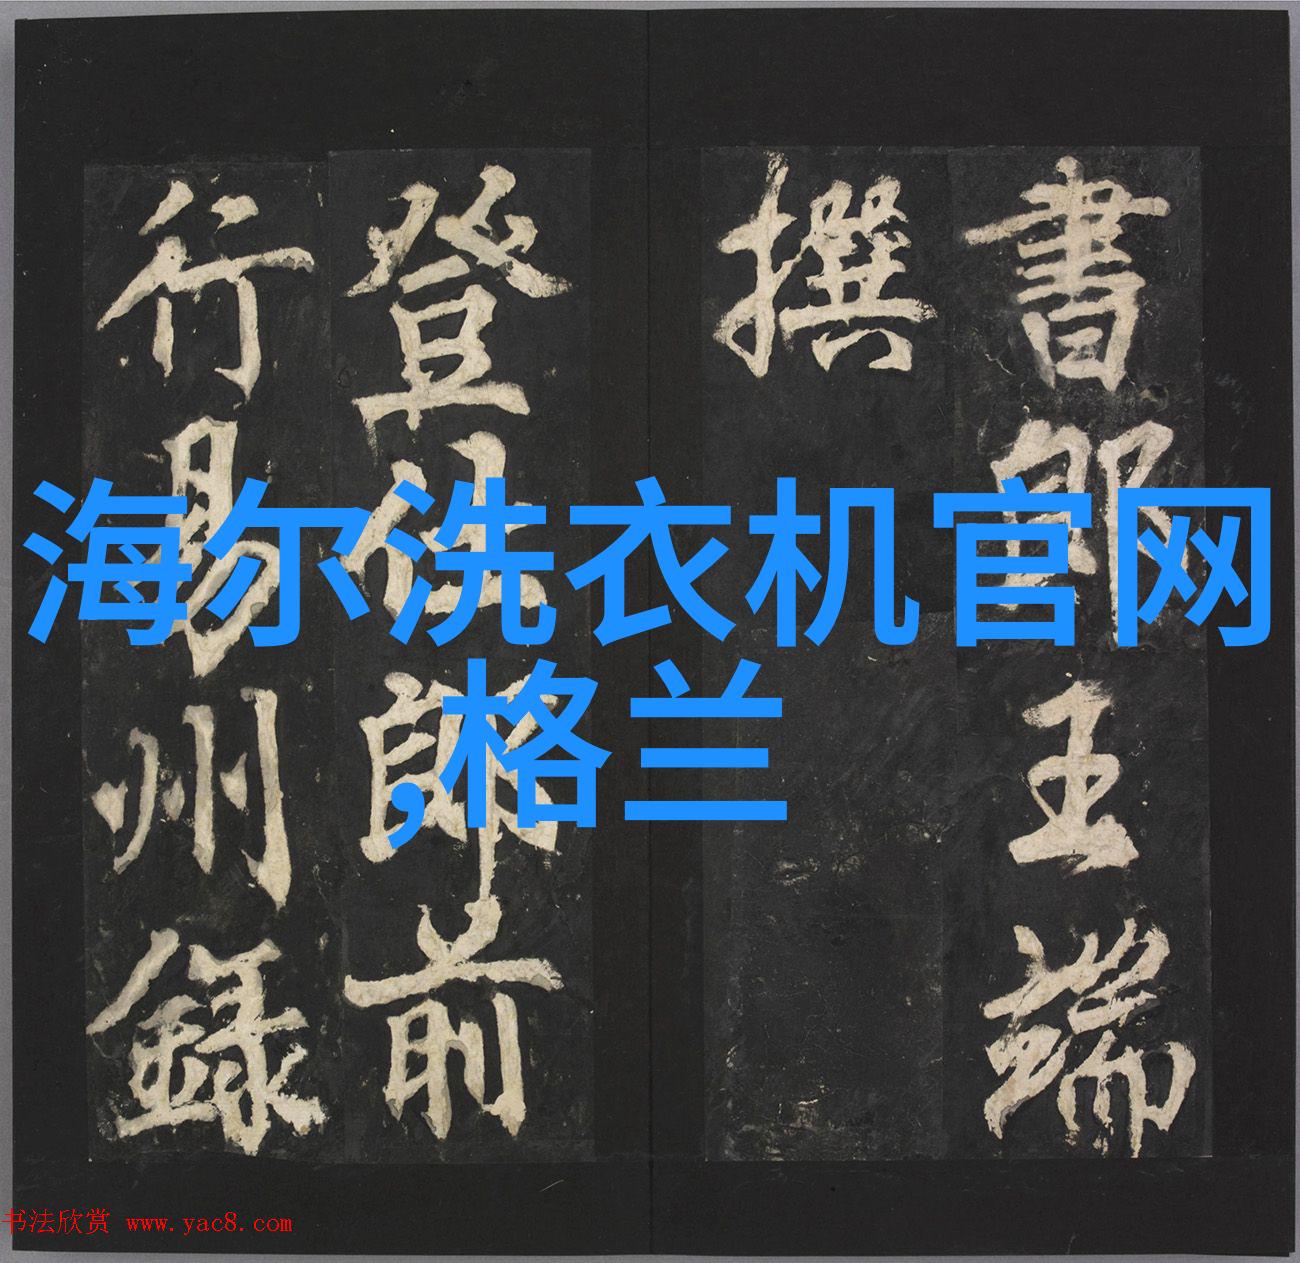 書郎王端
撰
登仕郎前
行易州録
海尔洗衣机官网
,格兰
书法欣赏 www.yac8.com